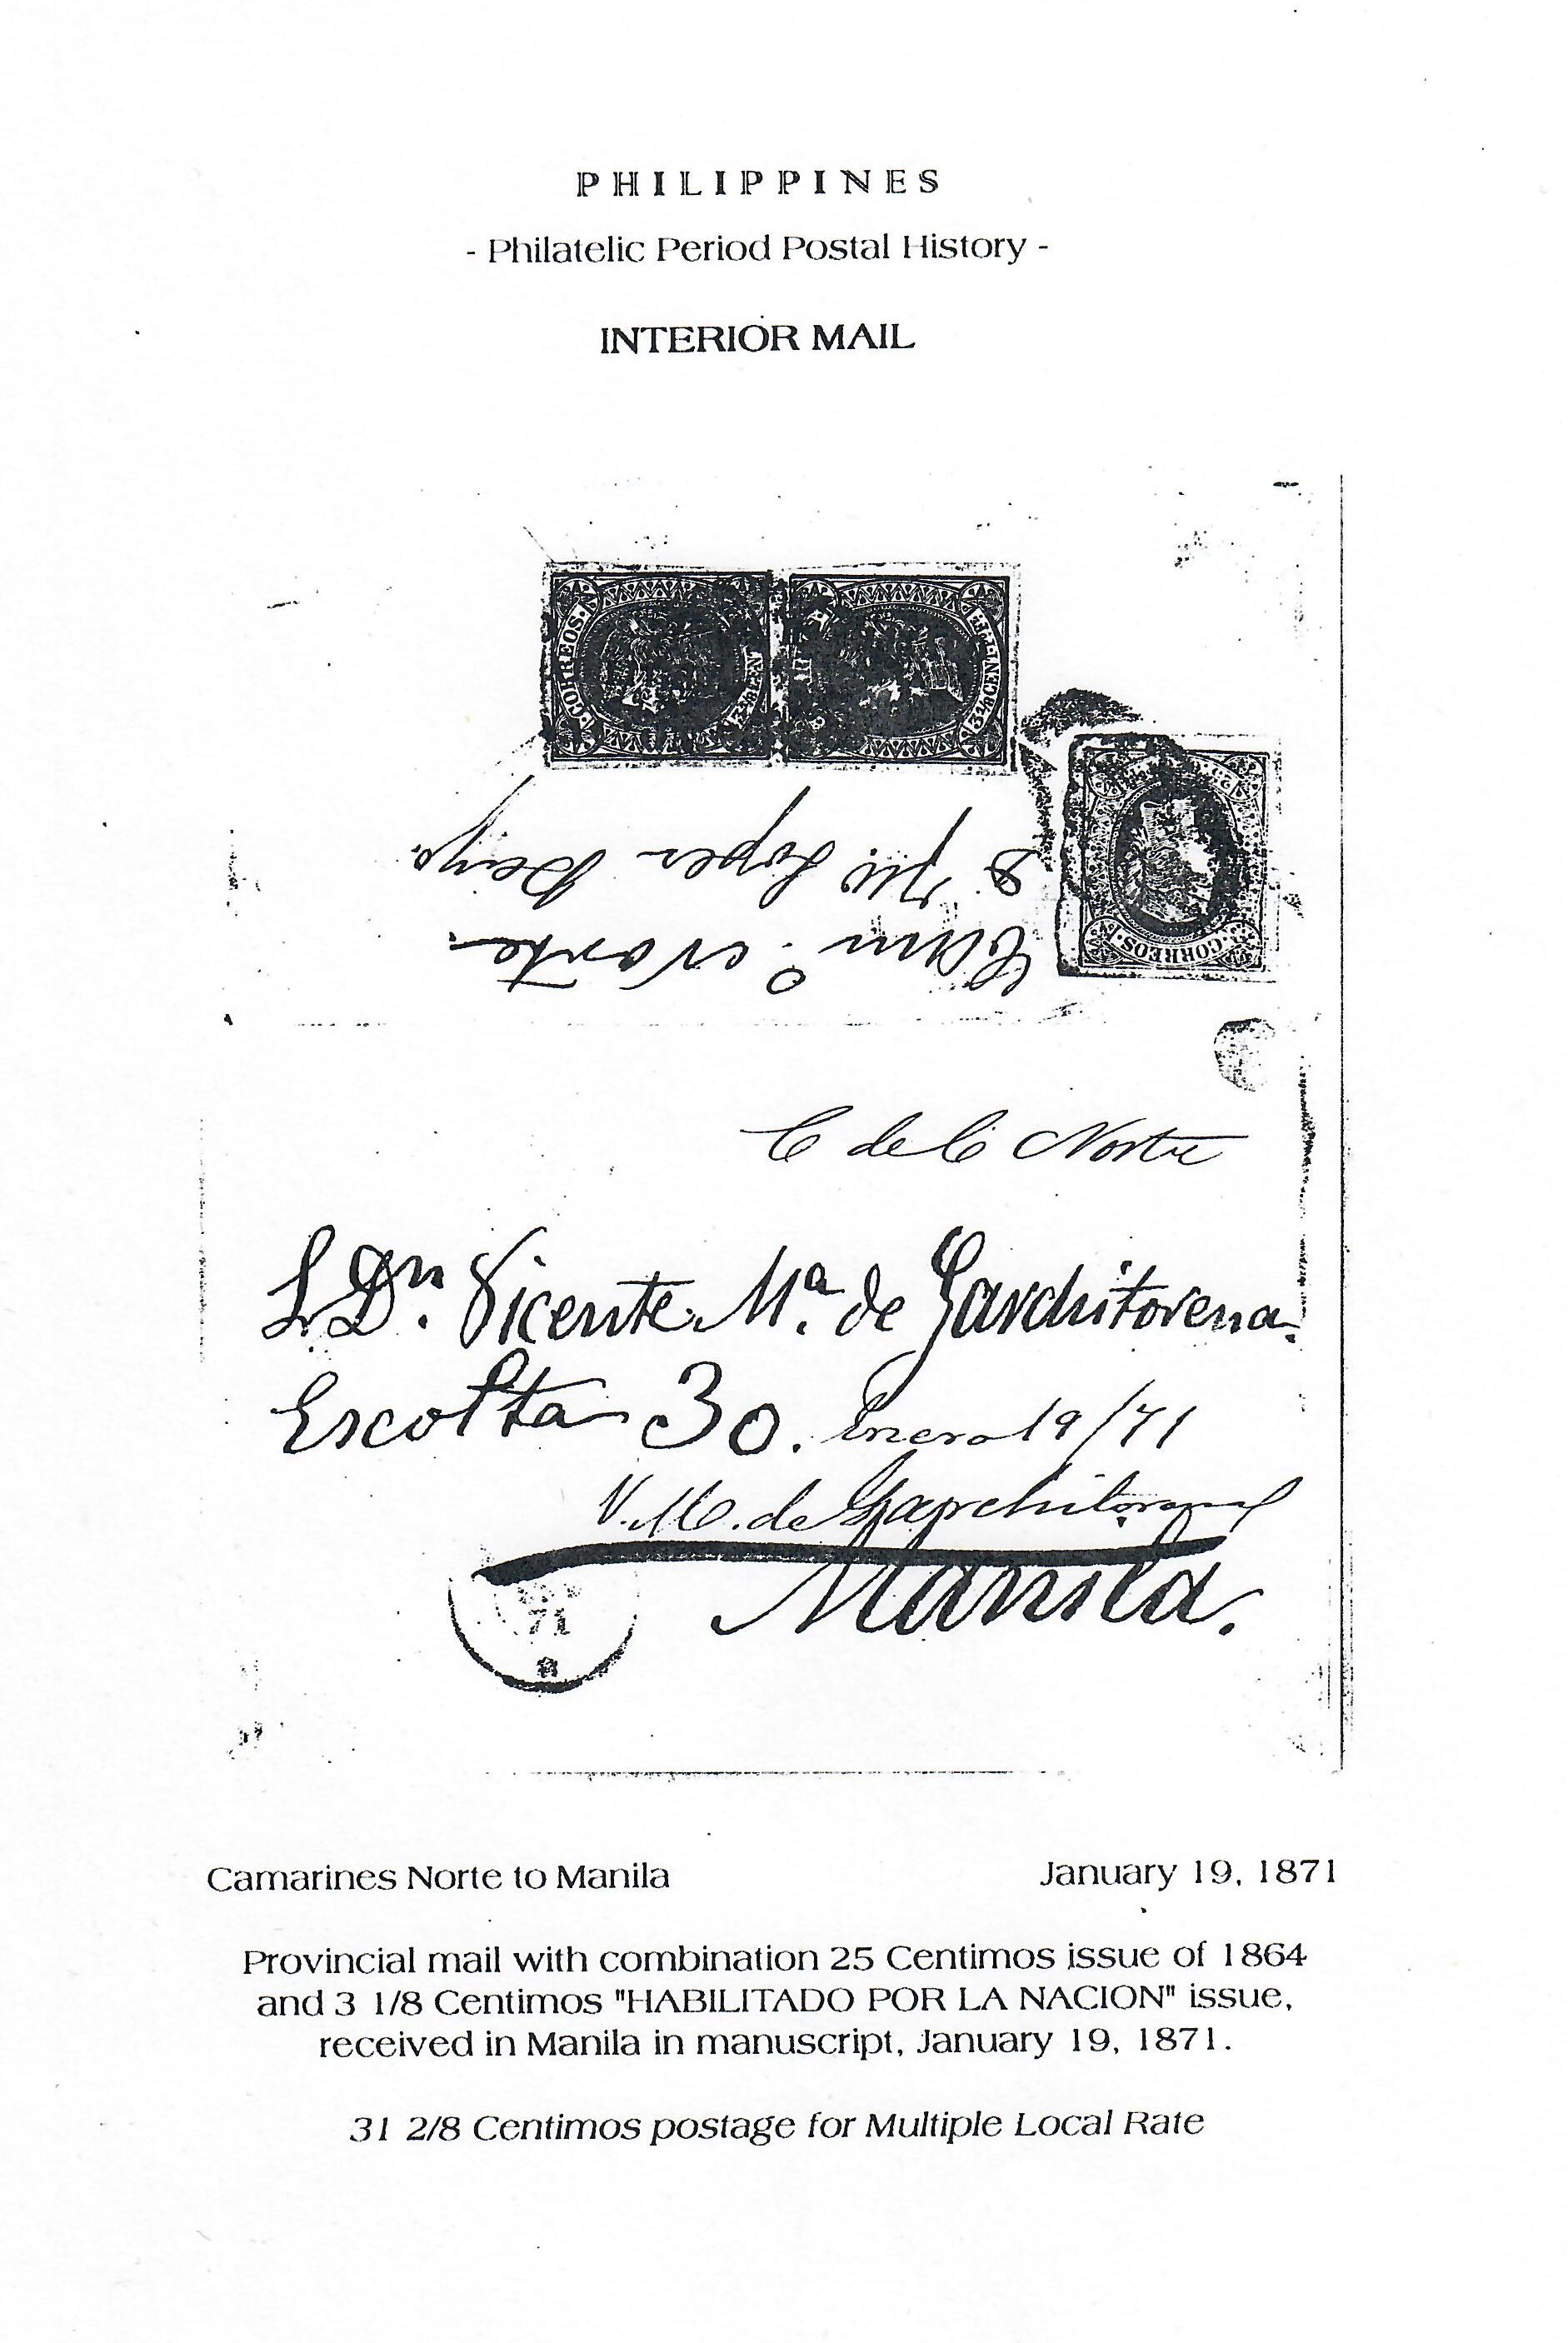 PHILIPPINES
- Philatelic Period Postal History -
INTERIOR MAIL
CORREOS
3 1/8 CEN
3 1/8 CENT
CORREOS
Norte
Lopez
C de C Norte
S. Dn. Vicente Mª. de Garchitorena.
Escolta 30. Enero 19/71
V. M. de Garchitorena
Manila.
71
Camarines Norte to Manila
January 19, 1871
Provincial mail with combination 25 Centimos issue of 1864
and 3 1/8 Centimos "HABILITADO POR LA NACION" issue,
received in Manila in manuscript, January 19, 1871.
31 2/8 Centimos postage for Multiple Local Rate